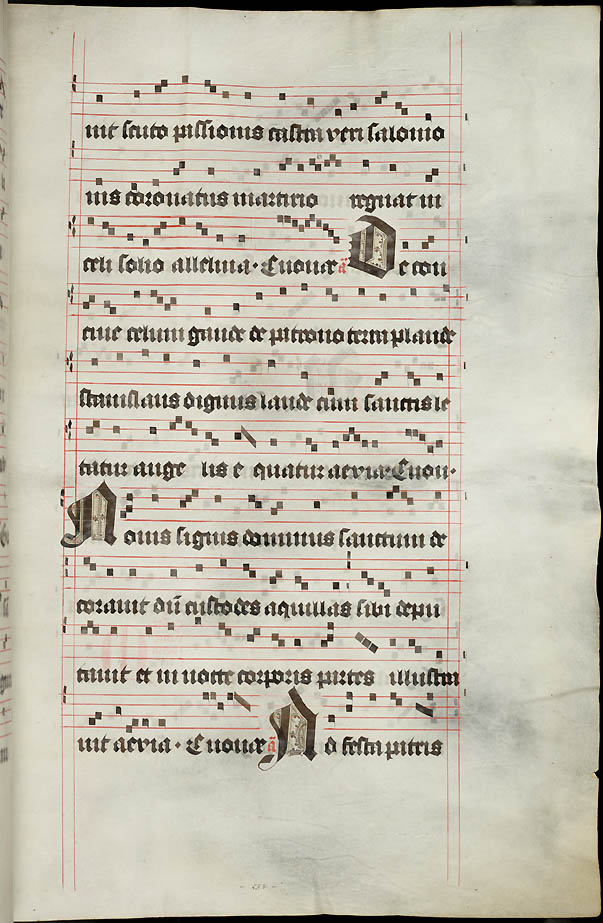 uit scuto passionis castra veri salomo
nis coronatus martirio regnat in
celi solio alleluia · Euouae a De con
ciue celum gaude de patrono terra plaude
stanislaus dignus laude cum sanctis le
tatur ange lis e quatur aevia · Euou ·
Nouis signis dominus sanctum de
corauit dū custodes aquilas sibi depu
tauit et in nocte corporis partes illustra
uit aevia · Euouae a Ad festa patris